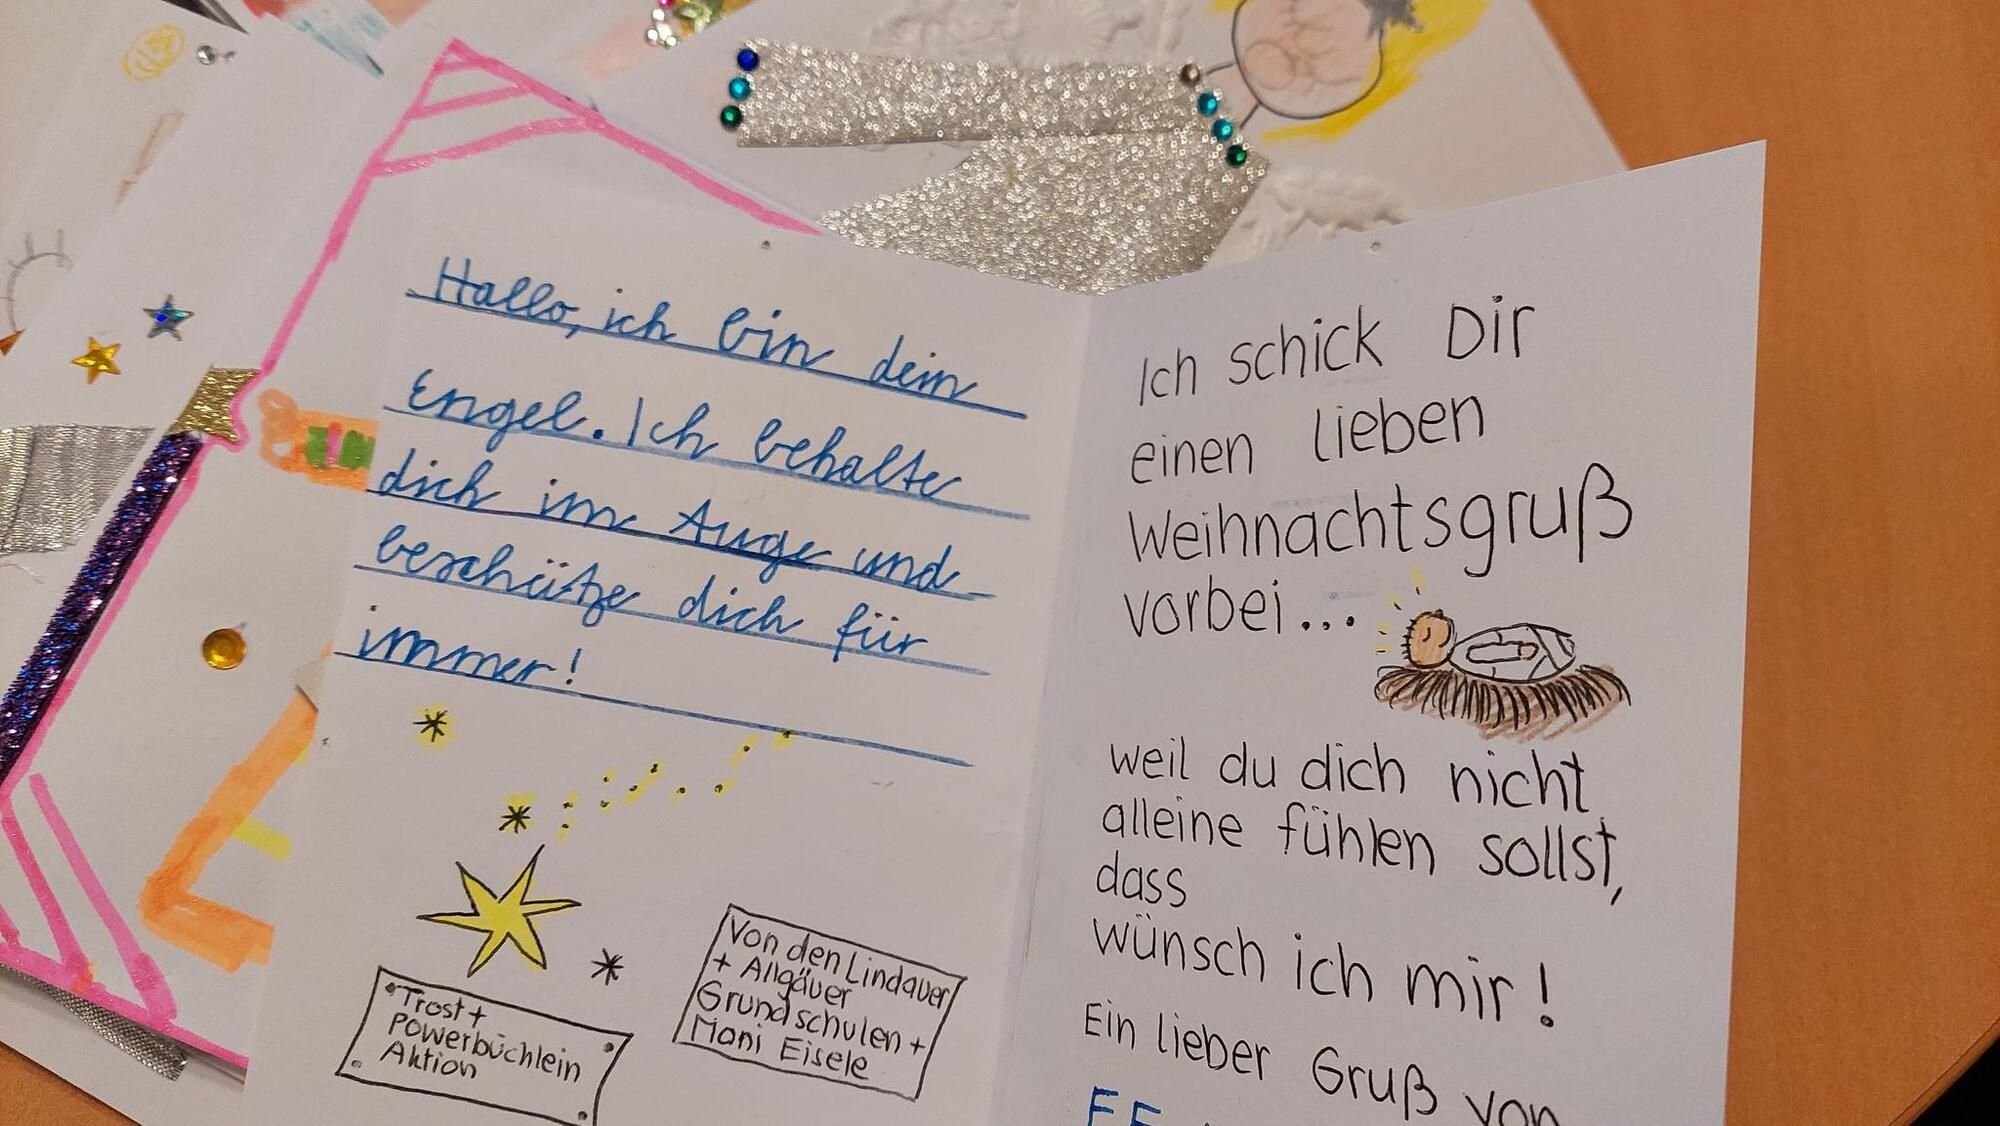 Hallo, ich bin dein
Engel. Ich behalte
dich im Auge und
beschütze dich für
immer!
Trost +
Powerbüchlein
Aktion
Von den Lindauer
+ Allgäuer
Grundschulen +
Moni Eisele
Ich schick Dir
einen lieben
Weihnachtsgruß
vorbei...
weil du dich nicht
alleine fühlen sollst,
dass
wünsch ich mir!
Ein lieber Gruß von